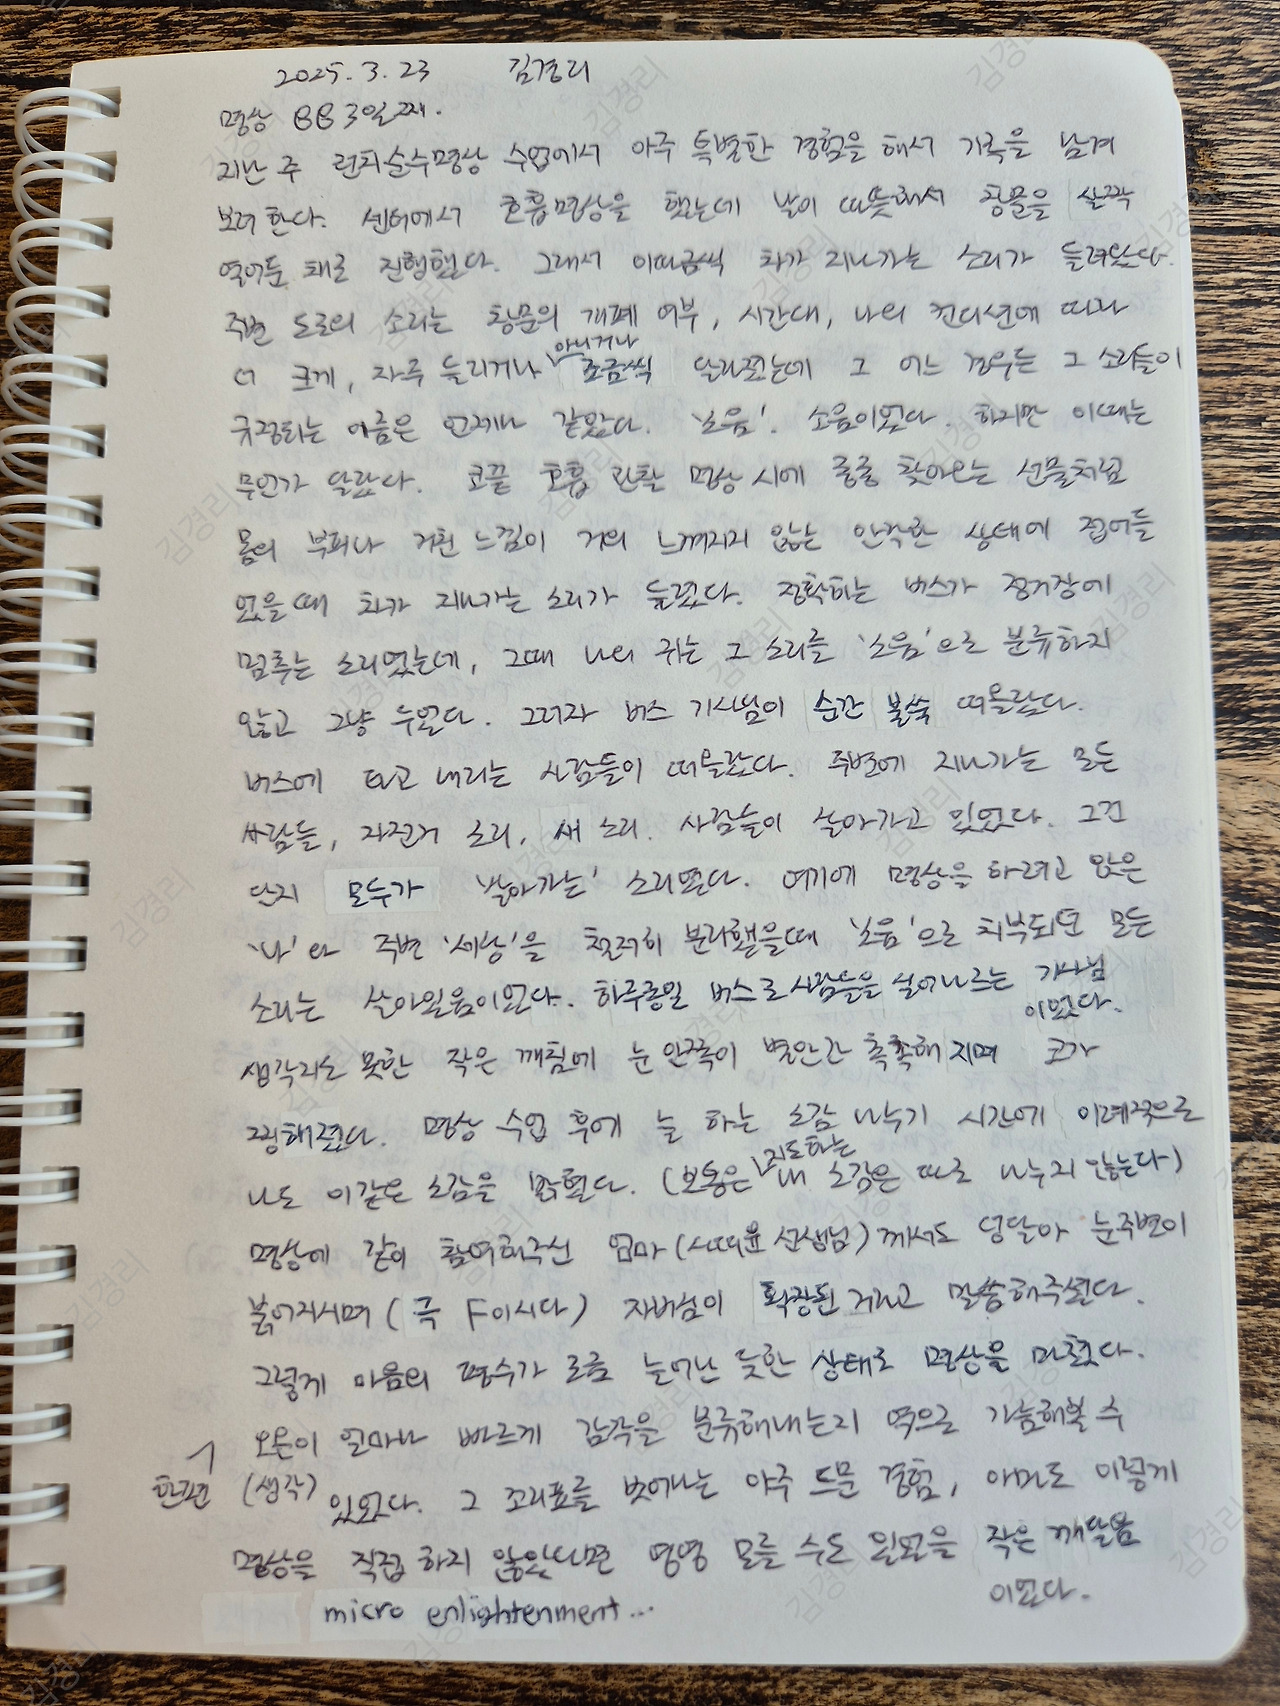 2025. 3. 23 김경리
명상 BB 3일째.
지난 주 런치순수명상 수업에서 아주 특별한 경험을 해서 기록을 남겨
보려 한다. 센터에서 호흡명상을 했는데 날이 따뜻해서 창문을 살짝
열어둔 채로 진행했다. 그래서 이따금씩 차가 지나가는 소리가 들려왔다.
주변 도로의 소리는 창문의 개폐 여부, 시간대, 나의 컨디션에 따라
더 크게, 자주 들리거나 아니거나 조금씩 달라졌는데 그 어느 경우든 그 소리들이
규정되는 이름은 언제나 같았다. '소음'. 소음이었다. 하지만 이때는
무언가 달랐다. 코끝 호흡 관찰 명상 시에 종종 찾아오는 선물처럼
몸의 부피나 거친 느낌이 거의 느껴지지 않는 안락한 상태에 접어들
었을 때 차가 지나가는 소리가 들렸다. 정확히는 버스가 정거장에
멈추는 소리였는데, 그때 나의 귀는 그 소리를 '소음'으로 분류하지
않고 그냥 두었다. 그러자 버스 기사님이 순간 불쑥 떠올랐다.
버스에 타고 내리는 사람들이 떠올랐다. 주변에 지나가는 모든
사람들, 자전거 소리, 새 소리. 사람들이 살아가고 있었다. 그건
단지 모두가 '살아가는' 소리였다. 여기에 명상을 하려고 앉은
'나'와 주변 '세상'을 철저히 분리했을때 '소음'으로 치부되던 모든
소리는 살아있음이었다. 하루종일 버스로 사람들을 실어나르는 기사님
이었다.
생각지도 못한 작은 깨침에 눈 안쪽이 별안간 촉촉해지며 코가
찡해졌다. 명상 수업 후에 늘 하는 소감 나누기 시간에 이례적으로
나도 이같은 소감을 밝혔다. (보통은 지도하는 내 소감은 따로 나누지 않는다)
명상에 같이 참여해주신 엄마(시띠윤 선생님)께서도 덩달아 눈주변이
붉어지시며 (극 F이시다) 자비심이 확장된 거라고 말씀해주셨다.
그렇게 마음의 평수가 조금 늘어난 듯한 상태로 명상을 마쳤다.
오온이 얼마나 빠르게 감각을 분류해내는지 역으로 가늠해볼 수
(생각) 있었다. 그 꼬리표를 벗어나는 아주 드문 경험, 아마도 이렇게
명상을 직접 하지 않았다면 영영 모를 수도 있었을 작은 깨달음
이었다.
micro enlightenment...